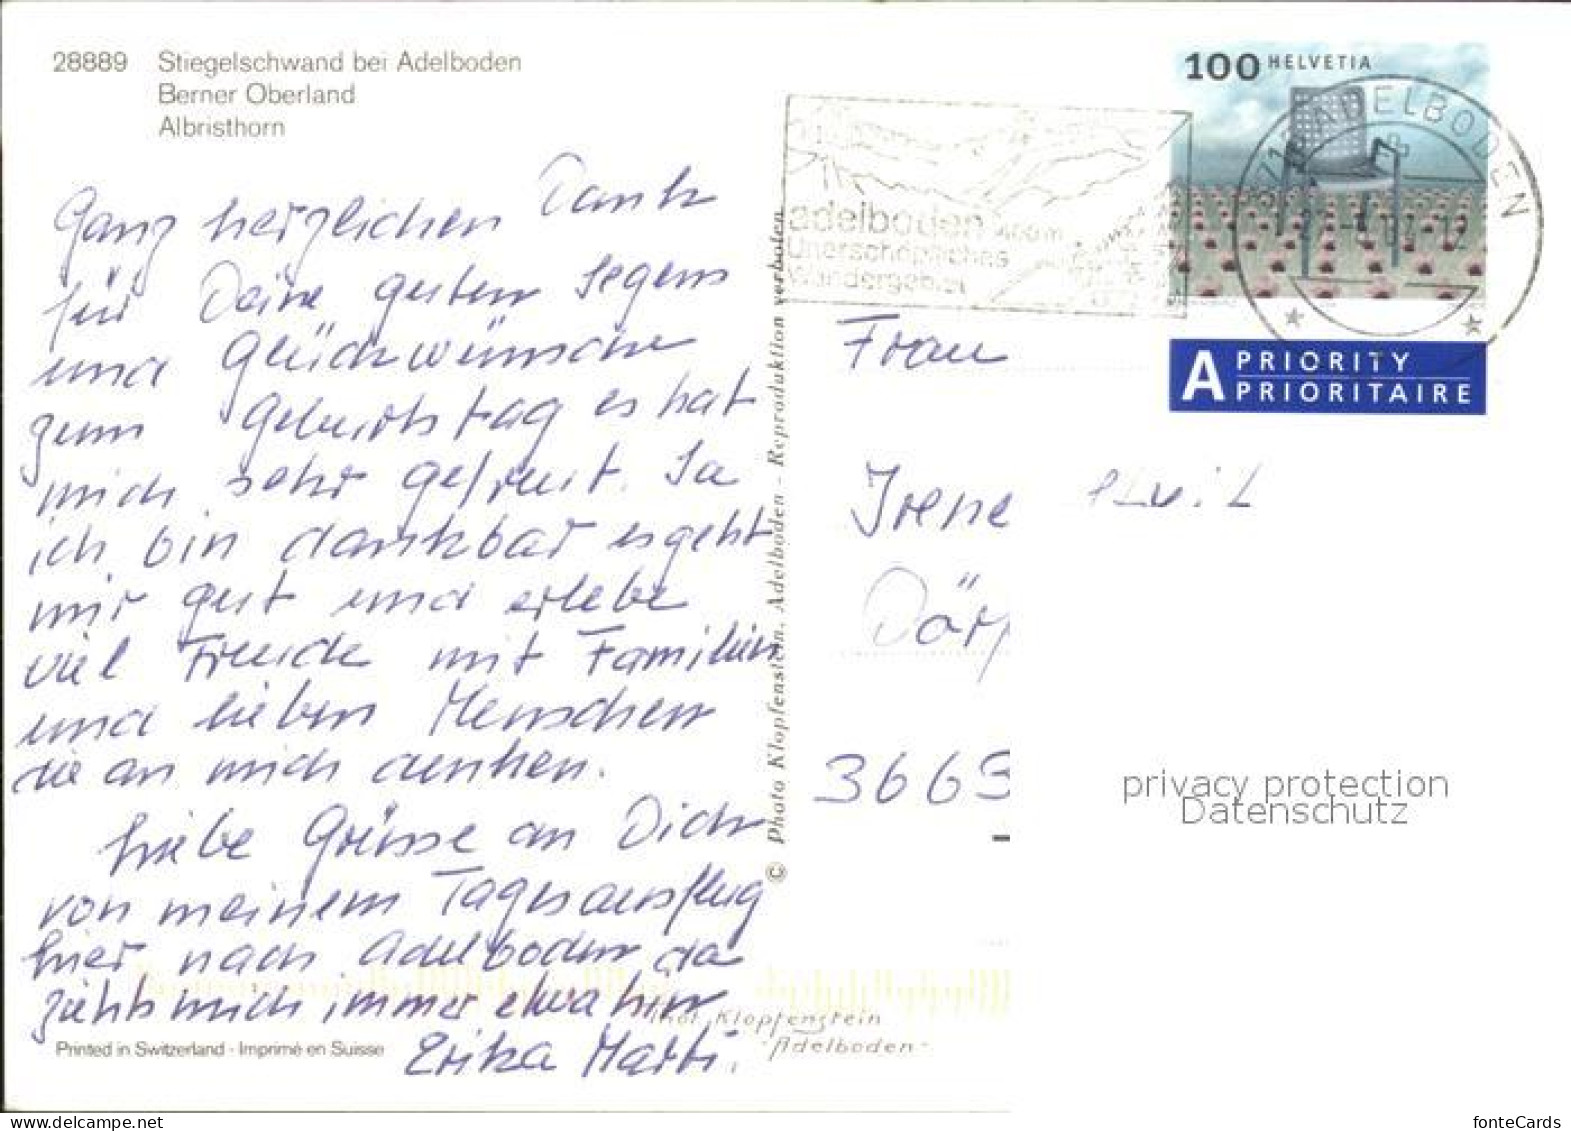 28889 Stiegelschwand bei Adelboden
Berner Oberland
Albristhorn
Ganz herzlichen Dank
für Deine guten Segens
und Glückwünsche
zum Geburtstag es hat
mich sehr gefreut. Ja
ich bin dankbar es geht
mir gut und erlebe
viel Freude mit Familien
und lieben Menschen
die an mich denken.
Liebe Grüsse an Dich
von meinem Tagesausflug
hier nach Adelboden da
ziehts mich immer etwa hin
Erika Marti.
Printed in Switzerland - Imprimé en Suisse
© Photo Klopfenstein, Adelboden - Reproduktion verboten
Phot. Klopfenstein
- Adelboden -
adelboden 1400 m
Unerschöpfliches
Wandergebiet
100 HELVETIA
ADELBODEN
A PRIORITY
PRIORITAIRE
Frau
Irene
Dörf
3663
privacy protection
Datenschutz
www.ansichtskartenversand.com
fonteCards